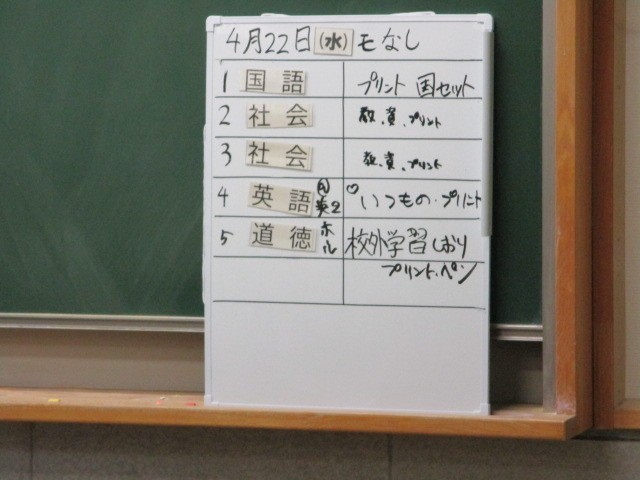 4月22日(水) モなし
1 国語 プリント 国セット
2 社会 教、資、プリント
3 社会 教、資、プリント
4 英語 @英2 ♡いつもの・プリント
5 道徳 ホル 校外学習しおり
プリント、ペン